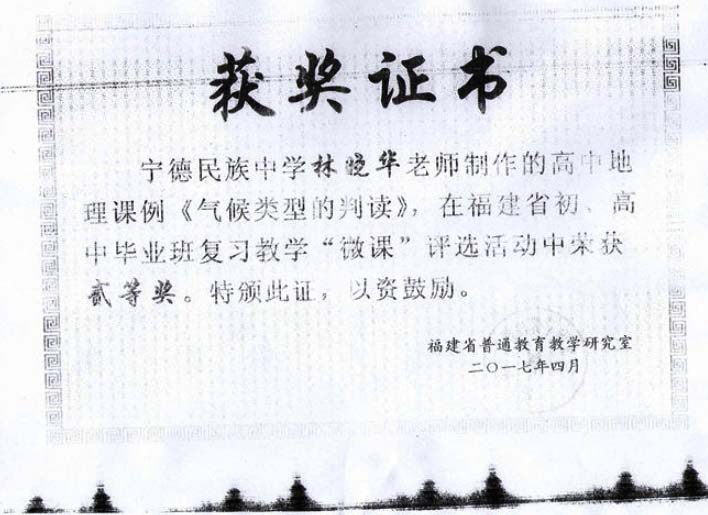 获奖证书
宁德民族中学林晓华老师制作的高中地
理课例《气候类型的判读》，在福建省初、高
中毕业班复习教学“微课”评选活动中荣获
贰等奖。特颁此证，以资鼓励。
福建省普通教育教学研究室
二〇一七年四月